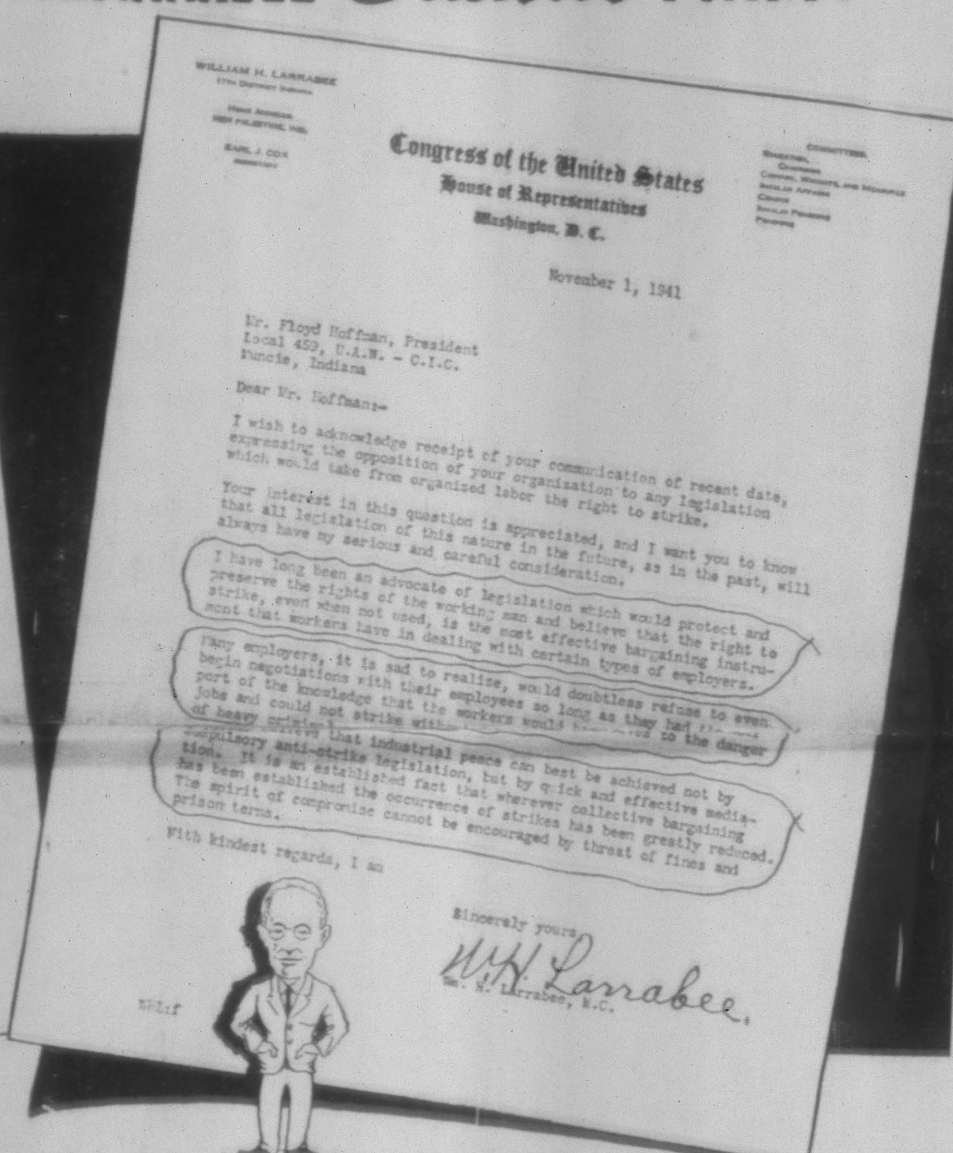 WILLIAM H. LARRABEE
11TH DISTRICT INDIANA
HOME ADDRESS:
NEW PALESTINE, IND.
EARL J. COX
SECRETARY
Congress of the United States
House of Representatives
Washington, D. C.
COMMITTEES:
EDUCATION,
CHAIRMAN
COINAGE, WEIGHTS, AND MEASURES
INSULAR AFFAIRS
CENSUS
INVALID PENSIONS
PENSIONS
November 1, 1941
Mr. Floyd Hoffman, President
Local 459, U.A.W. - C.I.O.
Muncie, Indiana
Dear Mr. Hoffman:-
I wish to acknowledge receipt of your communication of recent date,
expressing the opposition of your organization to any legislation
which would take from organized labor the right to strike.
Your interest in this question is appreciated, and I want you to know
that all legislation of this nature in the future, as in the past, will
always have my serious and careful consideration.
I have long been an advocate of legislation which would protect and
preserve the rights of the working man and believe that the right to
strike, even when not used, is the most effective bargaining instru-
ment that workers have in dealing with certain types of employers.
Many employers, it is sad to realize, would doubtless refuse to even
begin negotiations with their employees so long as they had the
port of the knowledge that the workers would to the
jobs and could not strike danger
of heavy
that industrial peace can best be achieved not by
compulsory anti-strike legislation, but by quick and effective media-
tion. It is an established fact that wherever collective bargaining
has been established the occurrence of strikes has been greatly reduced.
The spirit of compromise cannot be encouraged by threat of fines and
prison terms.
With kindest regards, I am
Sincerely yours,
W.H. Larrabee.
Wm. H. Larrabee, M.C.
WHL:f